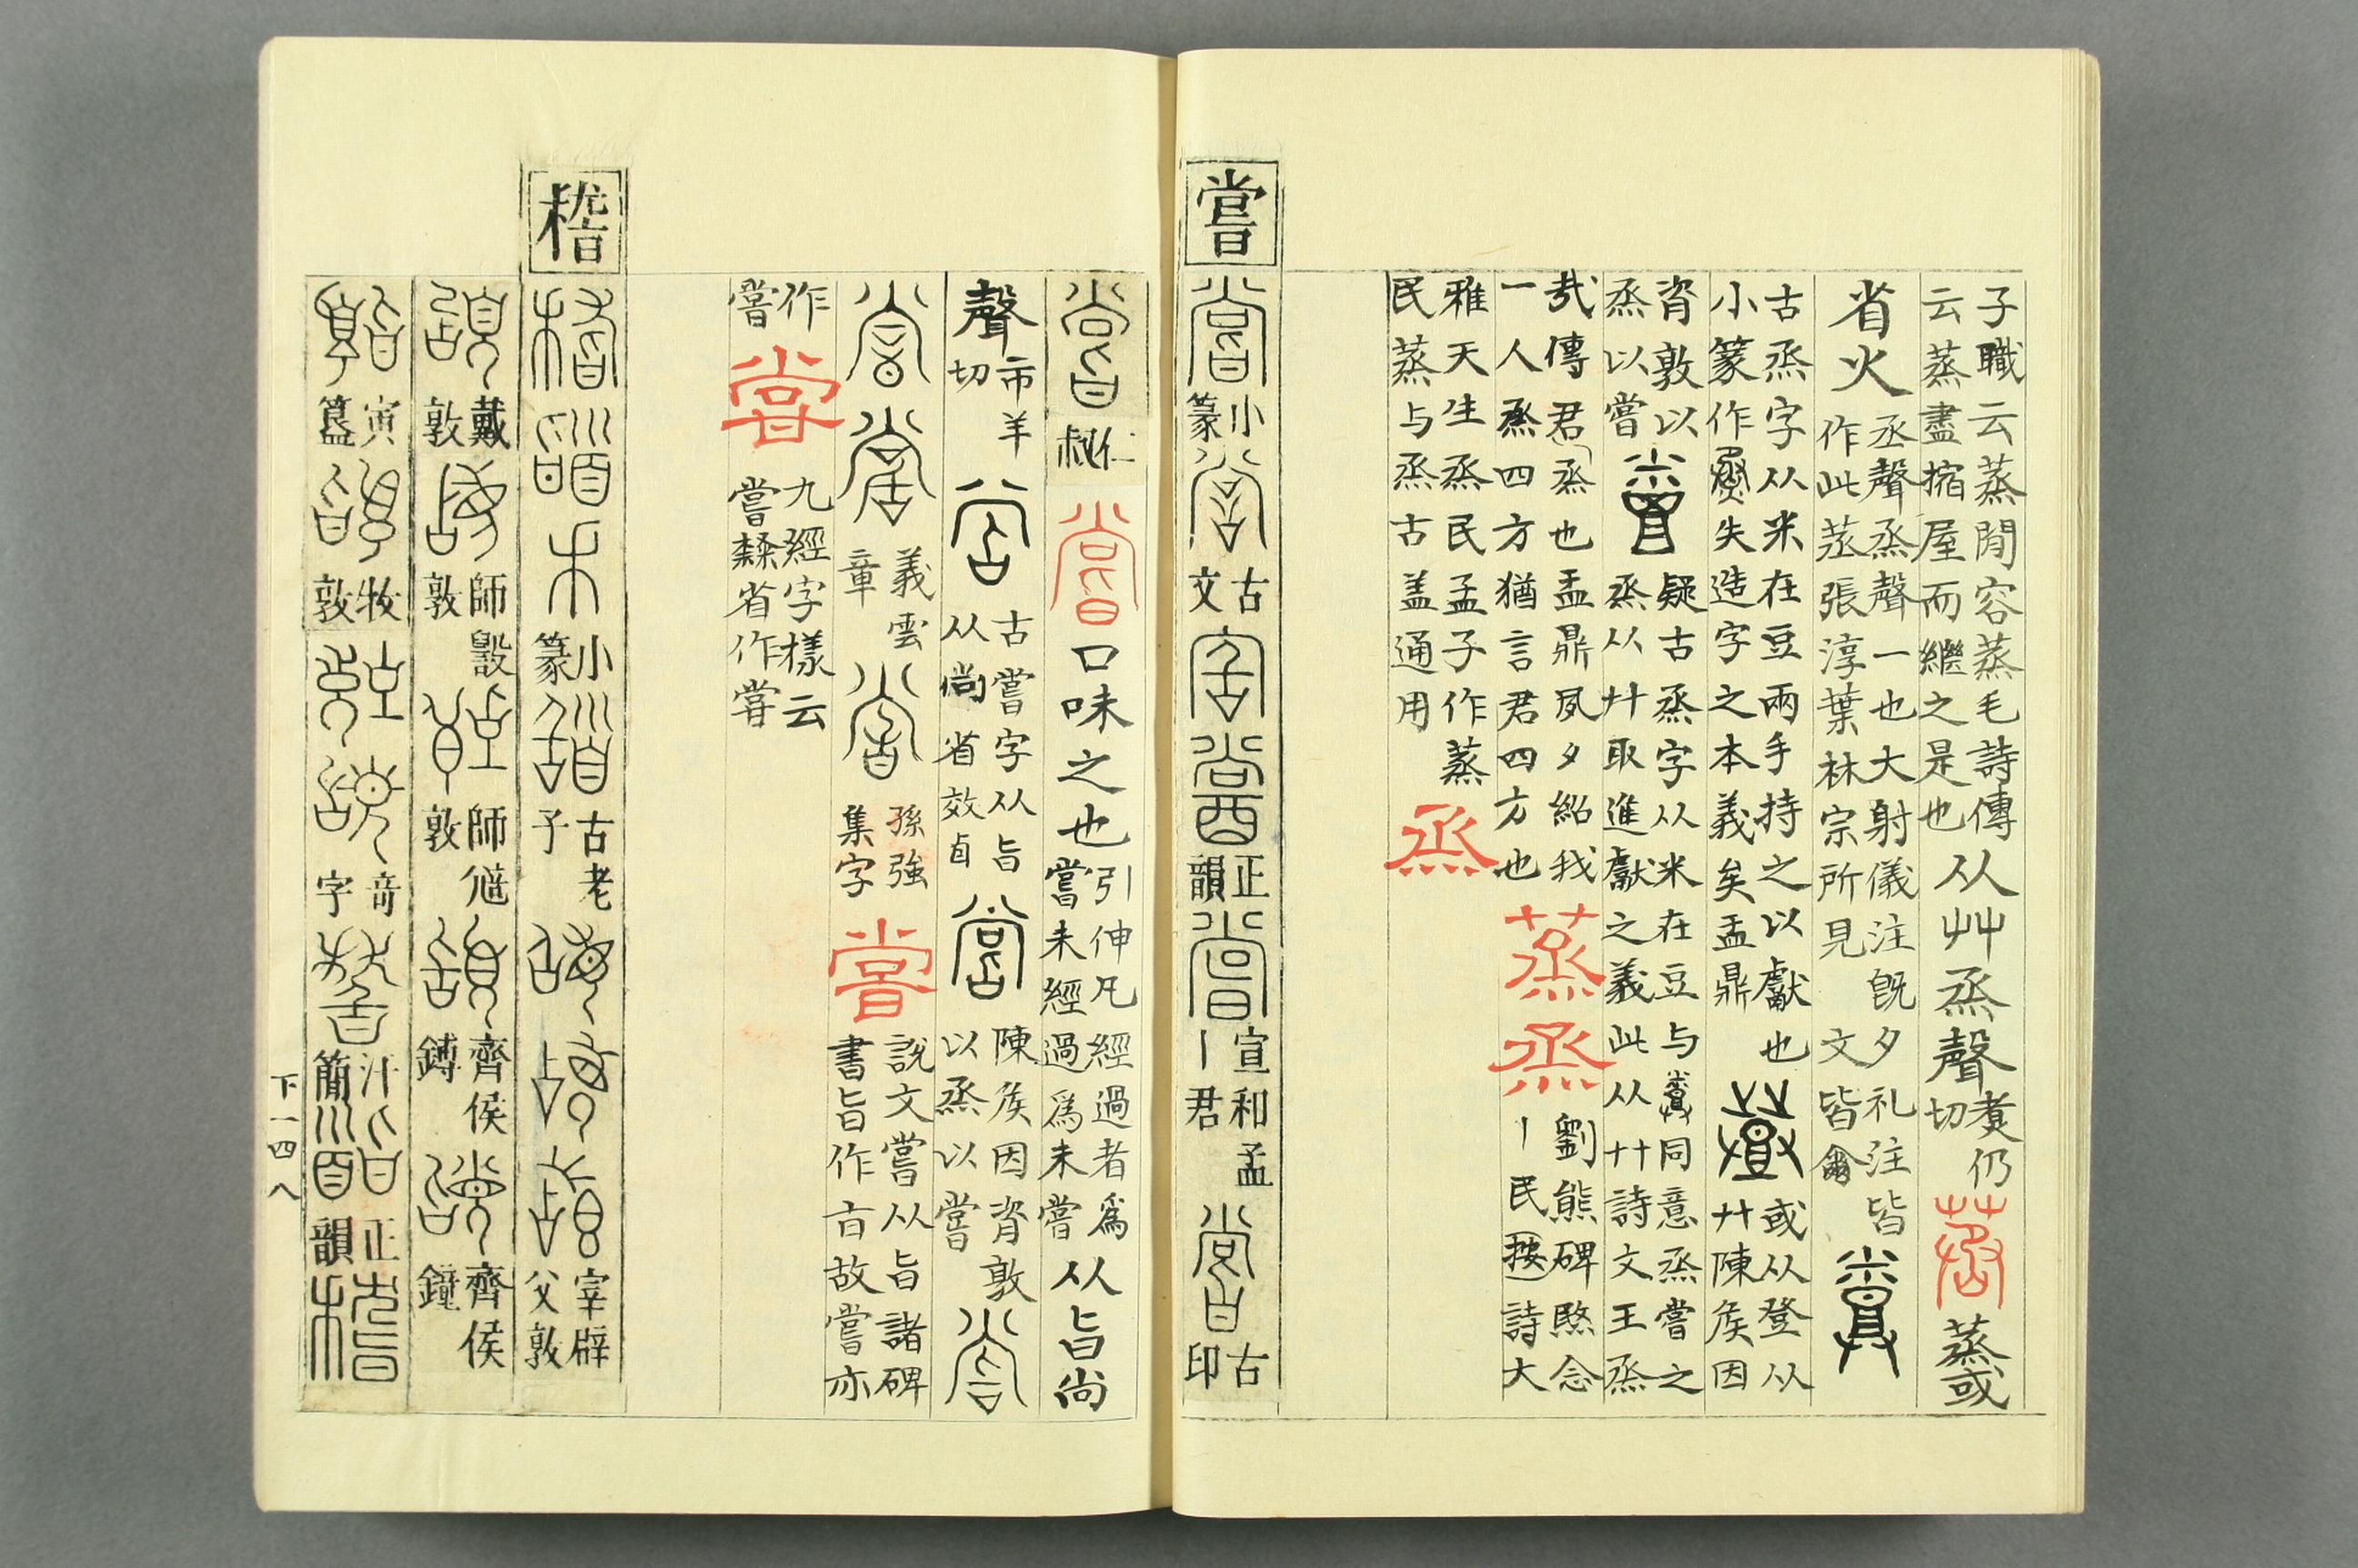 子職云蒸閒容蒸毛詩傳
云蒸盡搚屋而繼之是也
从艸烝聲
煑仍切
蒸或
省火
丞聲烝聲一也大射儀注旣夕礼注皆
作此蒸張淳葉林宗所見文皆
古烝字从米在豆兩手持之以獻也
小篆作失造字之本義矣盂鼎
或从登从
廾陳矦因
𦣞敦以
烝以嘗
疑古烝字从米在豆与同意烝嘗之
烝从廾取進獻之義此从廾詩文王烝
哉傳君烝也盂鼎夙夕紹我
一人烝四方猶言君四方也
蒸
烝
劉熊碑愍念
丨民按詩大
雅天生烝民孟子作蒸
民蒸与烝古盖通用
烝
嘗
小篆
古文
正韻
宣和孟丨君
古印
仁叔
口味之也
引伸凡經過者爲
嘗未經過爲未嘗
从旨尚
聲
市羊切
古嘗字从旨
从尚省效𠂤
陳矦因𦣞敦
以烝以嘗
義雲章
孫強集字
嘗
說文嘗从旨諸碑
書旨作㫖故嘗亦
作甞
九經字樣云
嘗隸省作甞
稽
小篆
古老子
宰辟父敦
戴敦
師㲃敦
師𩛥敦
齊侯鎛
齊侯鐘
寅簋
牧敦
奇字
汗簡
正韻
下一四八